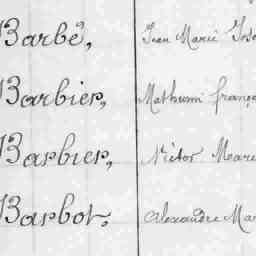 Barbé, Jean Marie José
Barbier, Mathurin França
Barbier, Victor Marie
Barbot, Alexandre Mar